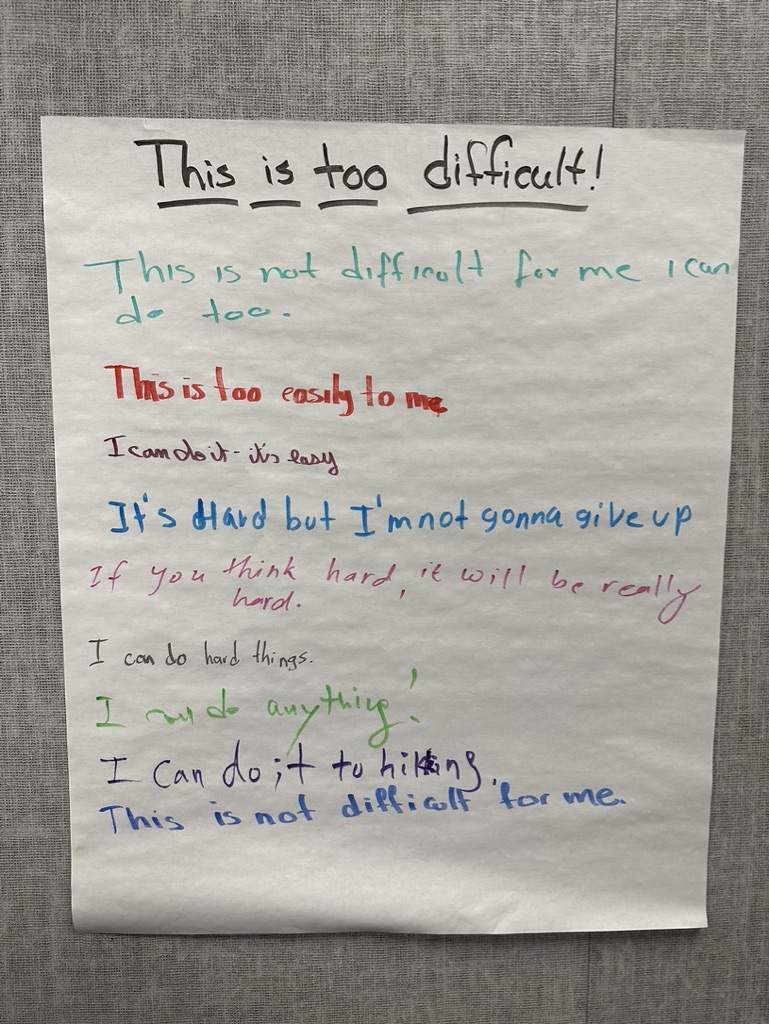 This is too difficult!
This is not difficult for me I can
do too.
This is too easily to me
I can do it - it's easy
It's Hard but I'm not gonna give up
If you think hard, it will be really
hard.
I can do hard things.
I can do anything!
I can do it to hiking.
This is not difficult for me.